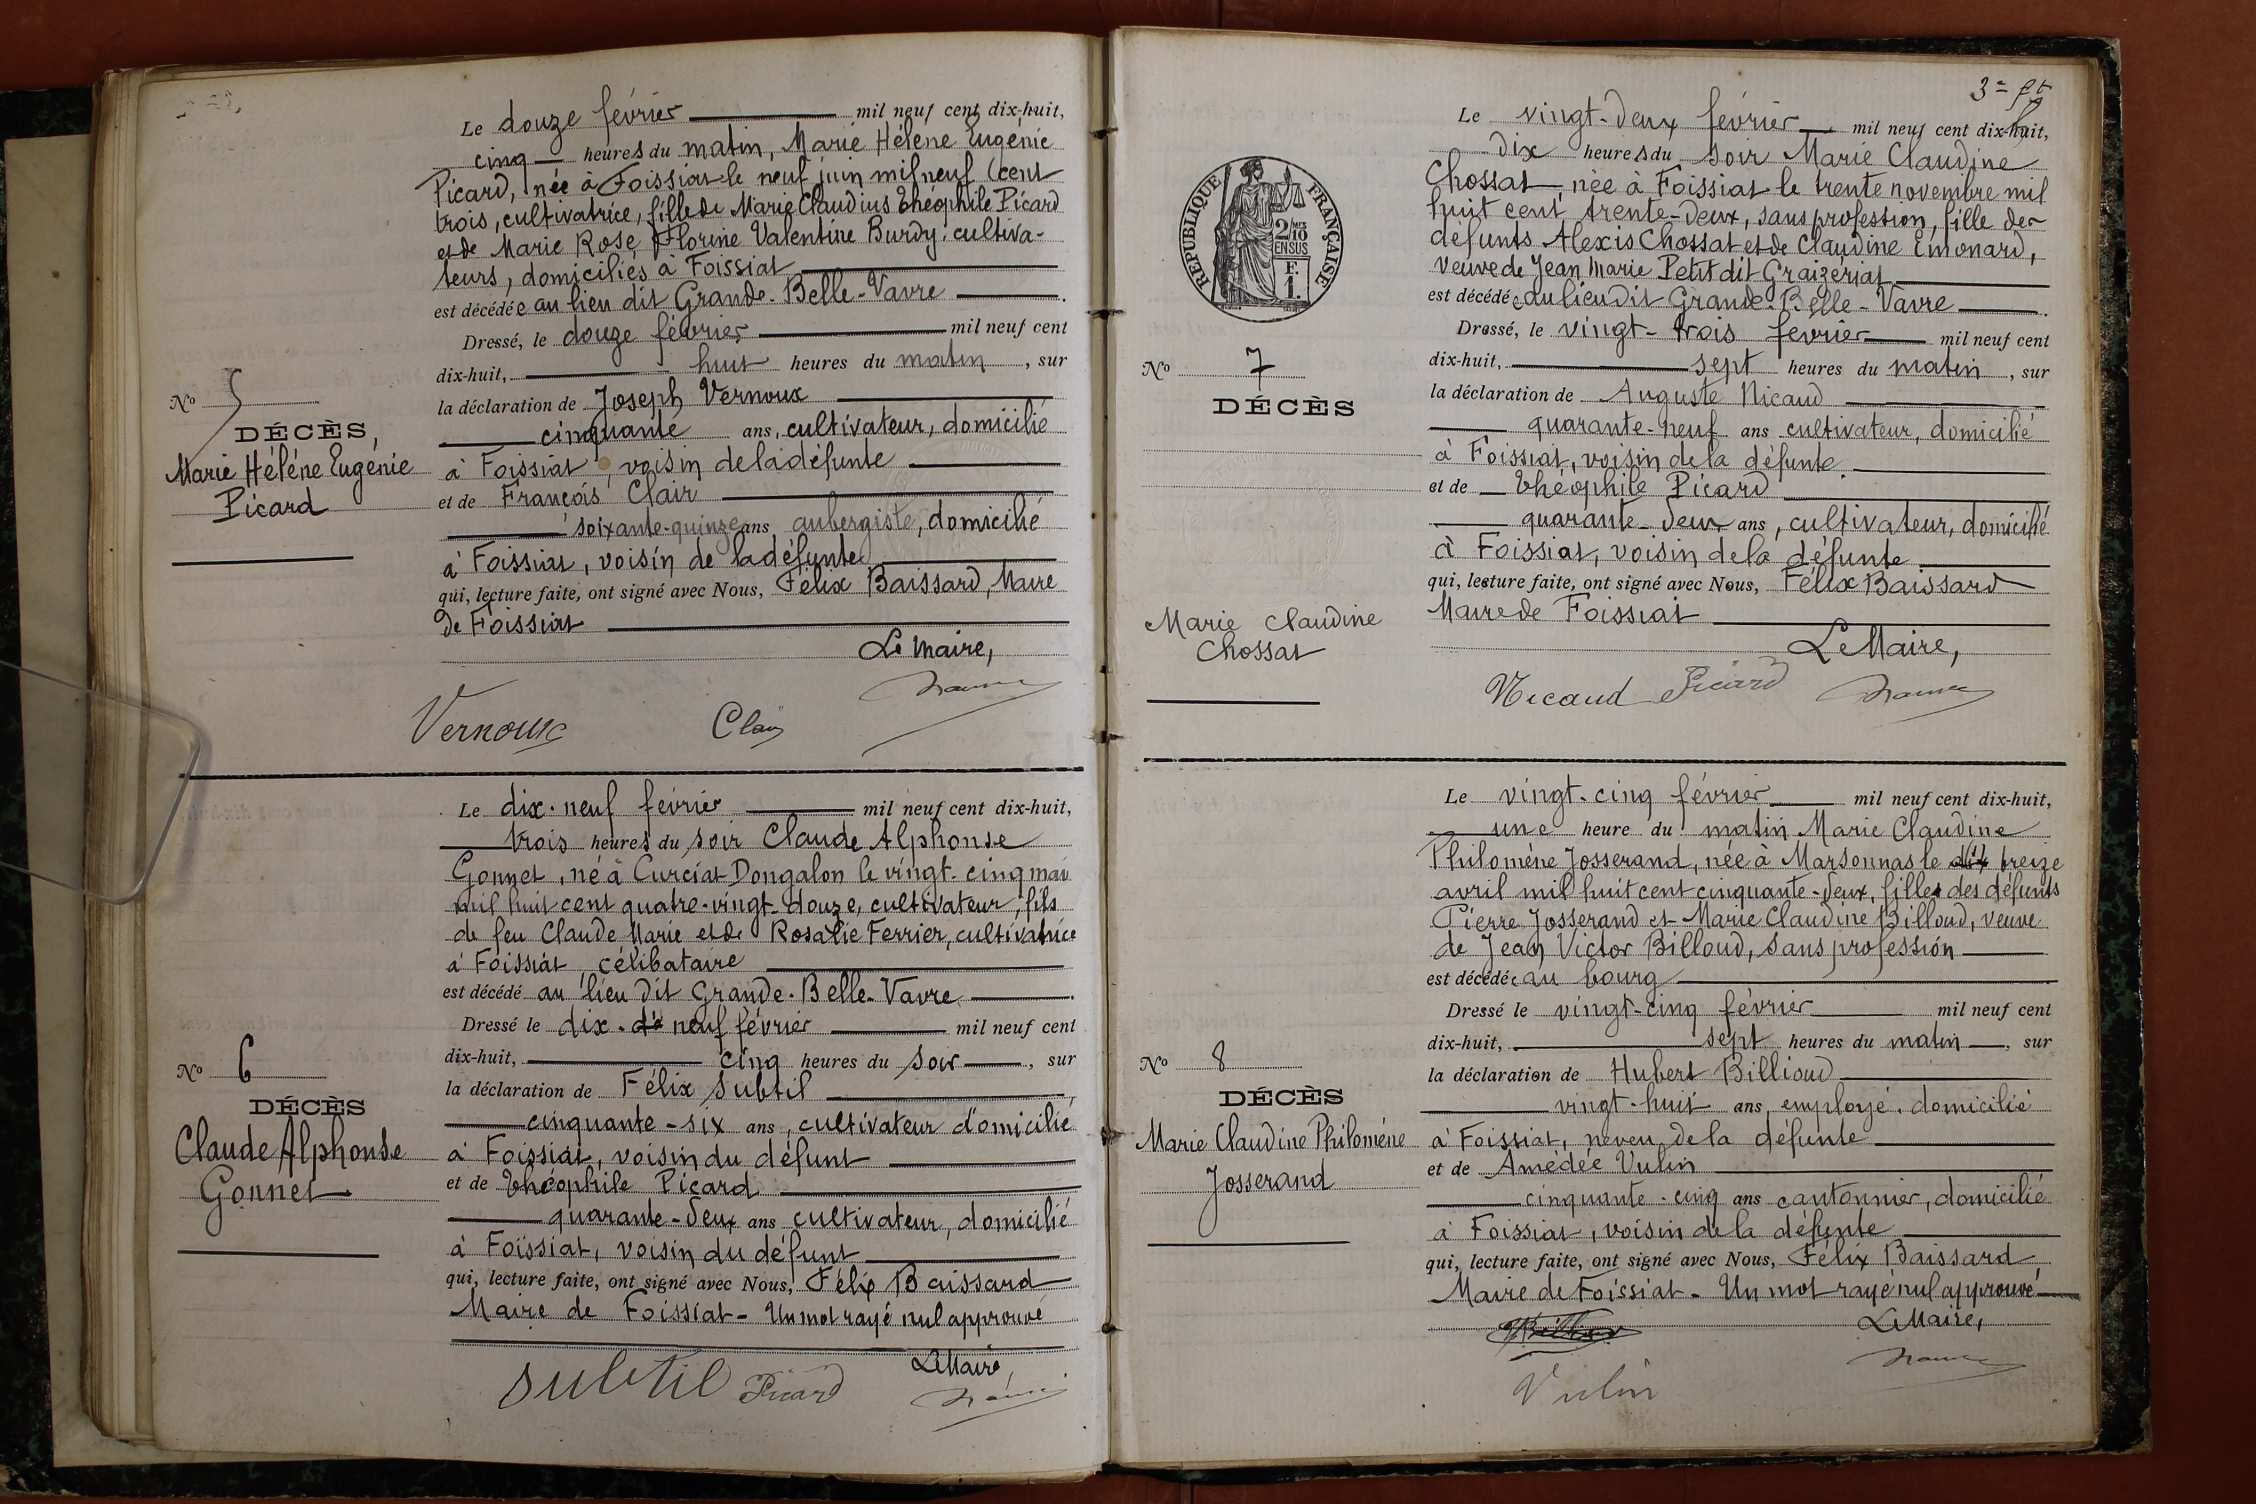 Le douze février mil neuf cent dix-huit,
cinq heures du matin, Marie Hélène Eugénie
Picard, née à Foissiat le neuf juin mil neuf cent
trois, cultivatrice, fille de Marie Claudius Théophile Picard
et de Marie Rose Florine Valentine Burdy, cultiva-
teurs, domiciliés à Foissiat
est décédée au lieu dit Grande-Belle-Vavre
Dressé, le douze février mil neuf cent
dix-huit, huit heures du matin, sur
la déclaration de Joseph Vernoux
cinquante ans, cultivateur, domicilié
à Foissiat, voisin de la défunte
et de François Clair
soixante-quinze ans aubergiste, domicilié
à Foissiat, voisin de la défunte
qui, lecture faite, ont signé avec Nous, Félix Baissard, Maire
de Foissiat
Le Maire,
Vernoux Clair
No 5
DÉCÈS,
Marie Hélène Eugénie
Picard
Le dix-neuf février mil neuf cent dix-huit,
trois heures du soir Claude Alphonse
Gonnet, né à Curciat Dongalon le vingt-cinq mai
mil huit cent quatre-vingt-douze, cultivateur, fils
de feu Claude Marie et de Rosalie Ferrier, cultivatrice
à Foissiat, célibataire
est décédé au lieu dit Grande-Belle-Vavre
Dressé le dix-di neuf février mil neuf cent
dix-huit, cinq heures du soir, sur
la déclaration de Félix Subtil,
cinquante-six ans, cultivateur domicilié
à Foissiat, voisin du défunt
et de Théophile Picard
quarante-deux ans cultivateur, domicilié
à Foissiat, voisin du défunt
qui, lecture faite, ont signé avec Nous, Félix Baissard
Maire de Foissiat - Un mot rayé nul approuvé
Le Maire,
Subtil Picard
No 6
DÉCÈS
Claude Alphonse
Gonnet
3e ft
Le vingt-deux février mil neuf cent dix-huit,
dix heures du soir Marie Claudine
Chossat née à Foissiat le trente novembre mil
huit cent trente-deux, sans profession, fille de
défunts Alexis Chossat et de Claudine Emonard,
veuve de Jean Marie Petit dit Graizeriat
est décédée au lieu dit Grande-Belle-Vavre.
Dressé, le vingt-trois février mil neuf cent
dix-huit, sept heures du matin, sur
la déclaration de Auguste Nicaud
quarante-neuf ans cultivateur, domicilié
à Foissiat, voisin de la défunte
et de Théophile Picard
quarante-deux ans, cultivateur, domicilié
à Foissiat, voisin de la défunte
qui, lecture faite, ont signé avec Nous, Félix Baissard
Maire de Foissiat
Le Maire,
Nicaud Picard
RÉPUBLIQUE FRANÇAISE
2/10
EN SUS
F.
1.
No 7
DÉCÈS
Marie Claudine
Chossat
Le vingt-cinq février mil neuf cent dix-huit,
une heure du matin Marie Claudine
Philomène Josserand, née à Marsonnas le dix treize
avril mil huit cent cinquante-deux, fille des défunts
Pierre Josserand et Marie Claudine Billoud, veuve
de Jean Victor Billoud, sans profession
est décédée au bourg
Dressé le vingt-cinq février mil neuf cent
dix-huit, sept heures du matin, sur
la déclaration de Hubert Billioud
vingt-huit ans employé, domicilié
à Foissiat, neveu de la défunte
et de Amédée Vulin
cinquante-cinq ans cantonnier, domicilié
à Foissiat, voisin de la défunte
qui, lecture faite, ont signé avec Nous, Félix Baissard
Maire de Foissiat - Un mot rayé nul approuvé
Le Maire,
Vulin
No 8
DÉCÈS
Marie Claudine Philomène
Josserand